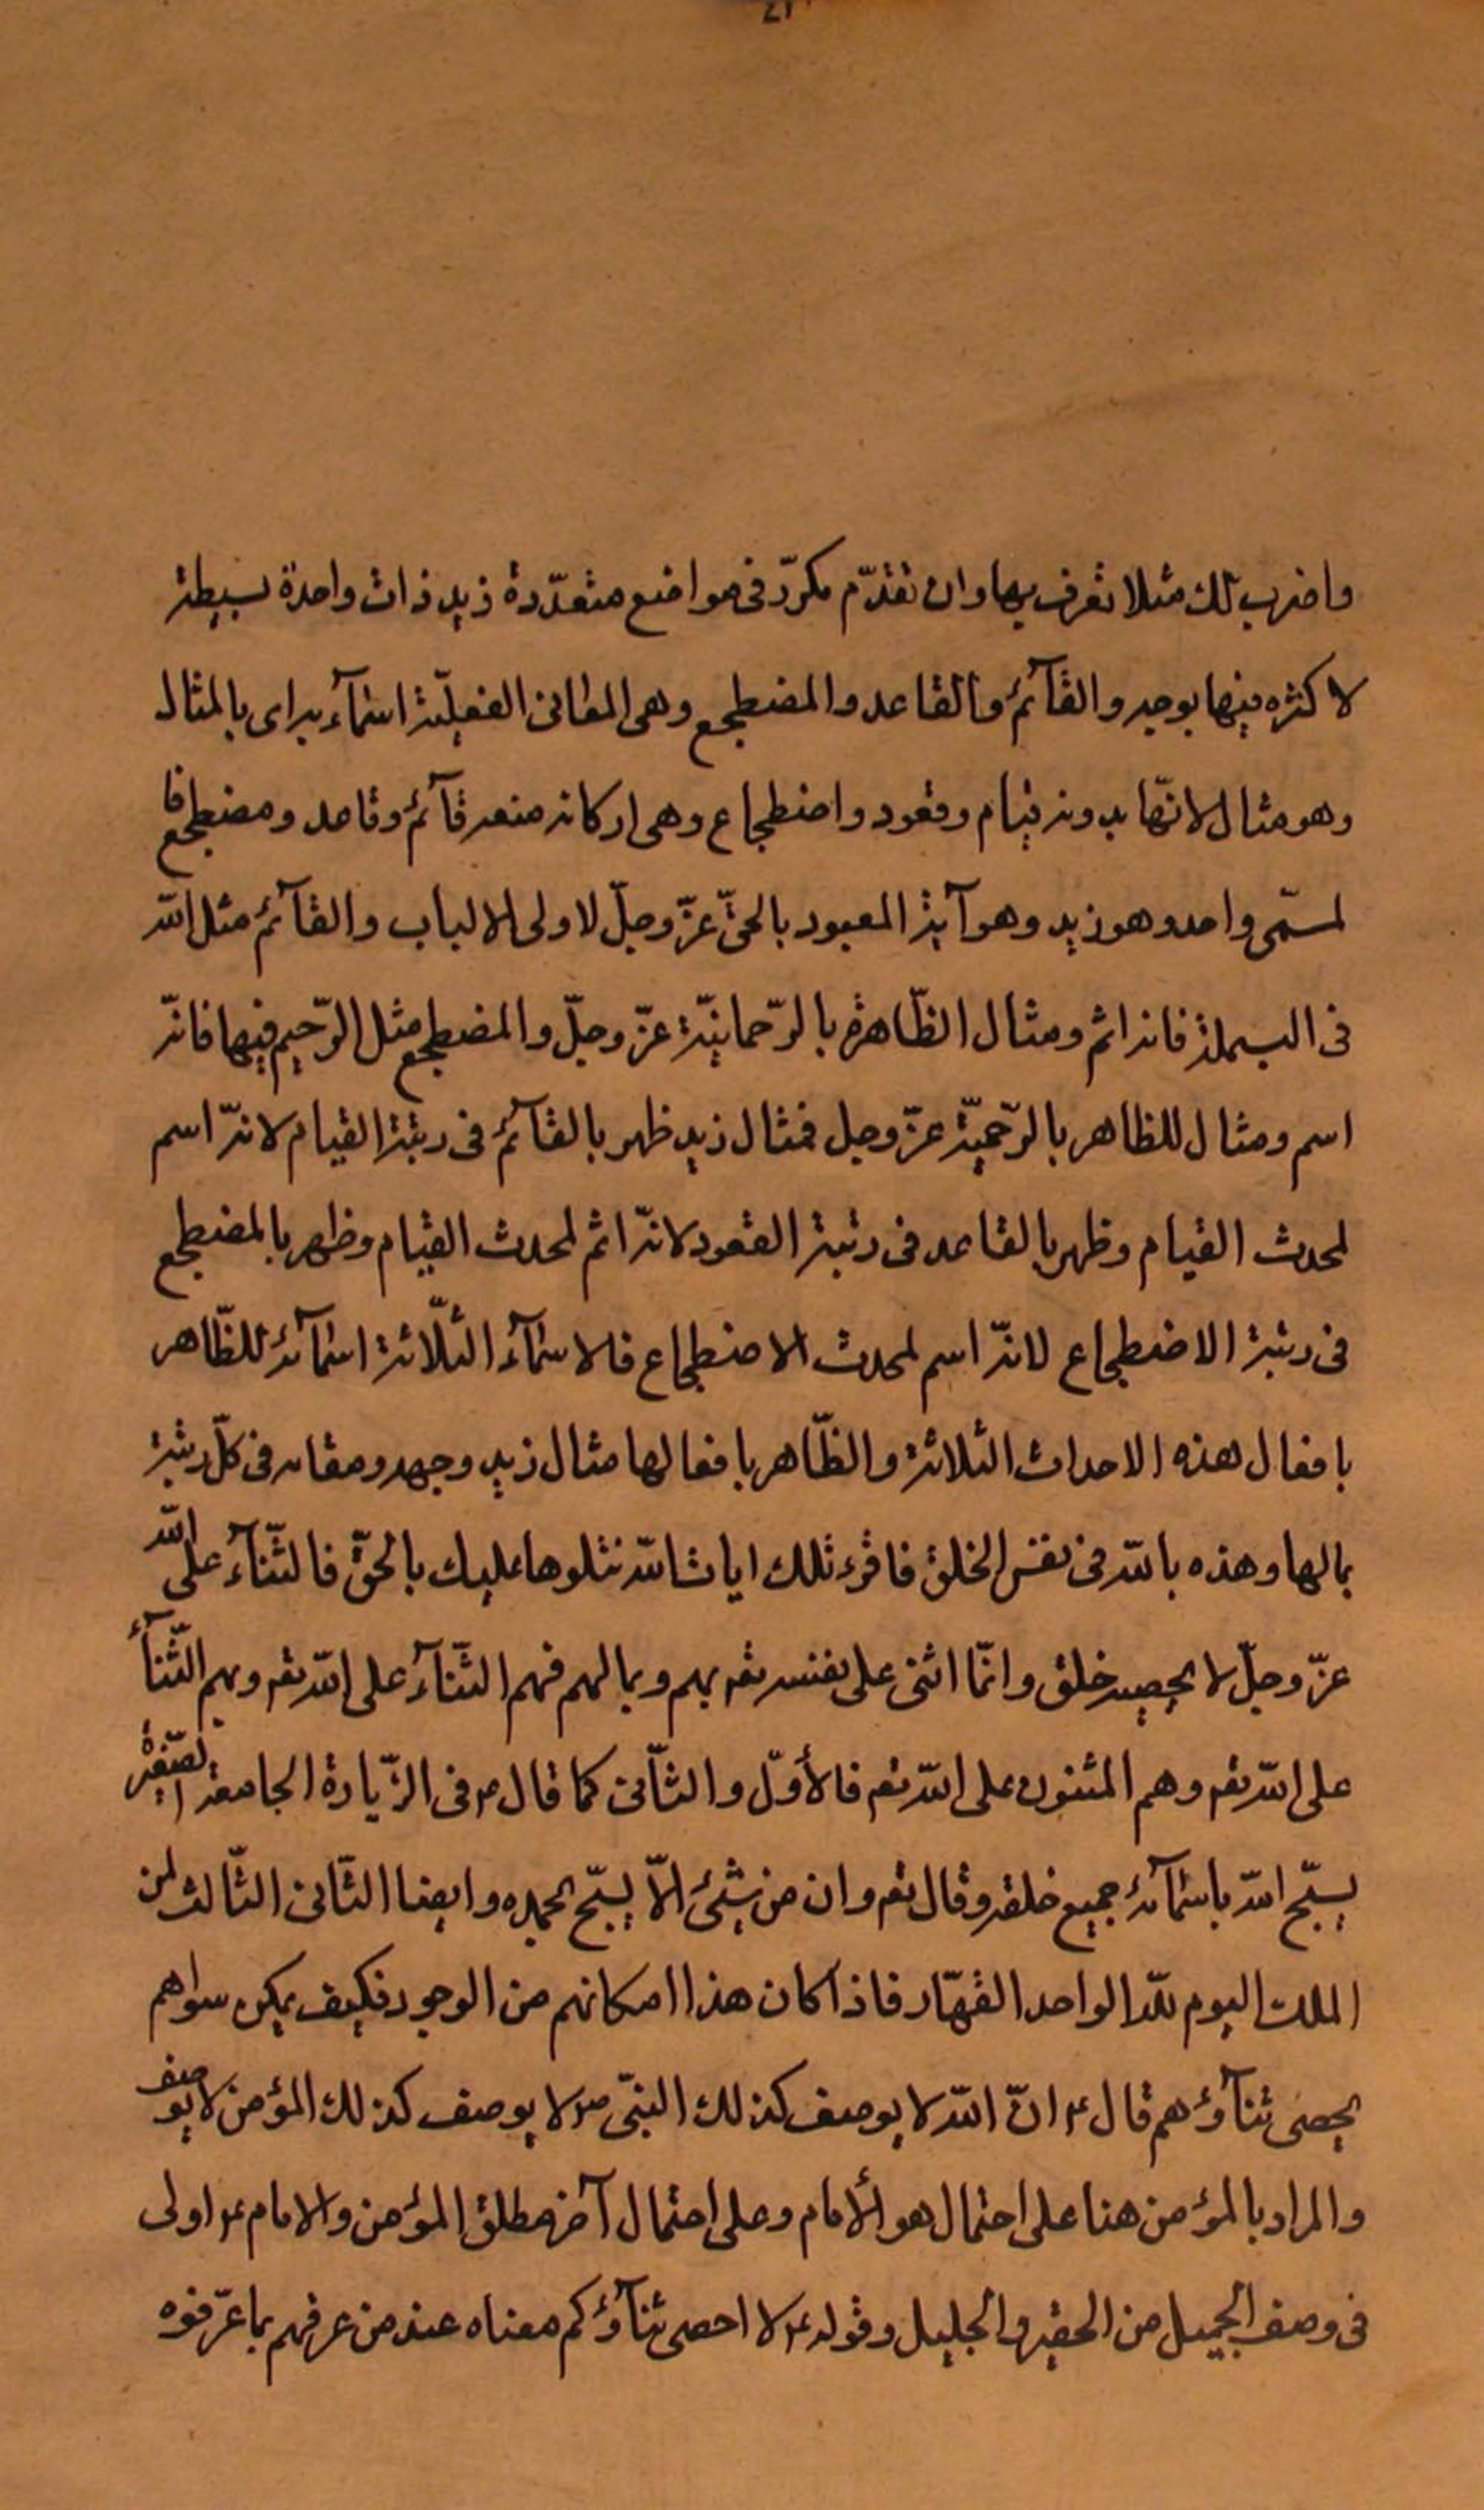 واضرب لك مثلا تعرف بها وان تقدّم مكرّر فى مواضع متعدّدة زيد ذات واحدة بسيطة
لا كثره فيها بوجه والقآئم والقاعد والمضطجع وهى المعانى الفعليّة اسمآءه اى بالمثال
وهو مثال لانّها بدونه قيام وقعود واضطجاع وهى اركانه منه قآئم وقاعد ومضطجع فا
لمسمّى واحد وهو زيد وهو آية المعبود بالحقّ عزّ وجلّ لاولى الالباب والقآئم مثل اللّه
فى البسملة فانه اسم ومثال الظّاهرة بالرّحمانيّة عزّ وجلّ والمضطجع مثل الرّحيم فيها فانّه
اسم ومثال للظاهر بالرّحميّة عزّ وجل فمثال زيد ظهر بالقآئم فى رتبة القيام لانّه اسم
لمحدث القيام وظهر بالقاعد فى رتبة القعود لانّه اسم لمحدث القيام وظهر بالمضطجع
فى رتبة الاضطجاع لانّه اسم لمحدث الاضطجاع فالاسمآء الثّلاثة اسمآئه للظّاهر
بافعال هذه الاحداث الثلاثة والظّاهر بافعالها مثال زيد وجهه ومقامه فى كلّ رتبة
بمالها وهذه باللّه فى نفس الخلق فاقرء تلك ايات اللّه نتلوها عليك بالحقّ فالثّنآء على اللّه
عزّ وجلّ لا يحصيه خلق وانّما اثنى على نفسه تعم بهم وبمالهم فهم الثّنآء على اللّه تعم وبهم الثّنآء
على اللّه تعم وهم المثنون على اللّه تعم فالأوّل والثّانى كما قال ع فى الزّيارة الجامعة الصّغيرة
يسبّح اللّه باسمآئه جميع خلقه وقال تعم وان من شيئ الاّ يسبّح بحمده وايضا الثّانى الثّالث لمن
الملك اليوم للّه الواحد القهّار فاذا كان هذا امكانهم من الوجود فكيف يمكن سواهم
يحصى ثنآؤهم قال ع انّ اللّه لا يوصف كذلك النبّى ص لا يوصف كذلك المؤمن لا يوصف
والمراد بالمؤمن هنا على احتمال هو ألامام وعلى احتمال آخر مطلق المؤمن والامام ع اولى
فى وصف الجميل من الحقير والجليل وقوله ع لا احصى ثنآؤكم معناه عند من عرفهم بما عرّفوه